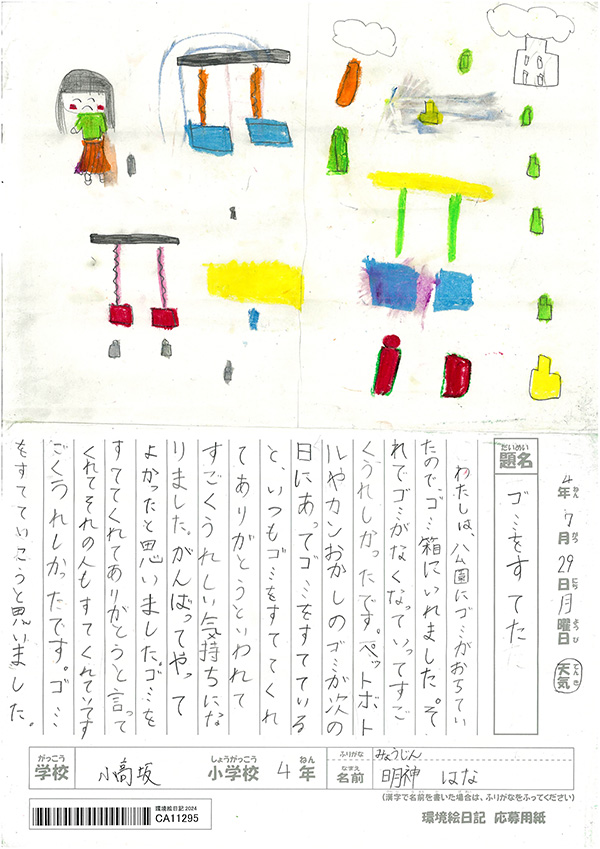 4年ねん7月がつ29日にち月曜日ようび天気てんき
題名だいめい ゴミをすてた
わたしは、公園にゴミがおちてい
たのでゴミ箱にいれました。そ
れでゴミがなくなっていってすご
くうれしかったです。ペットボト
ルやカンおかしのゴミが次の
日にあってゴミをすてている
と、いつもゴミをすててくれ
てありがとうといわれて
すごくうれしい気持ちにな
りました。がんばってやって
よかったと思いました。ゴミを
すててくれてありがとうと言って
くれてその人もすてくれていてす
ごくうれしかったです。ゴミ
をすてていこうと思いました。
学校がっこう 小高坂 小学校しょうがっこう 4年ねん
ふりがな みょうじん
名前なまえ 明神 はな
(漢字で名前を書いた場合は、ふりがなをふってください)
環境絵日記2024
CA11295
環境絵日記 応募用紙